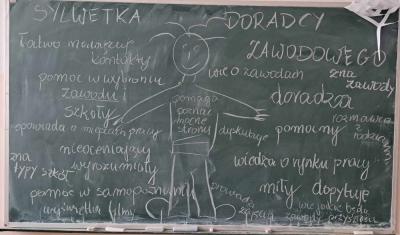 SYLWETKA DORADCY
ZAWODOWEGO
łatwo nawiązuje
kontakty
pomoc w wybraniu
zawodu i
szkoły
opowiada o miejscach pracy
nieoceniający
zna
typy szkół
wyrozumiały
pomoc w samopoznaniu
wyświetla filmy
pomaga
poznać
mocne
strony
wie o zawodach
zna
zawody
doradza
rozmawia
z rodzicami
dyskutuje
pomocny
wiedza o rynku pracy
miły
dopytuje
prowadzi
zajęcia
wie jakie będą
zawody przyszłości